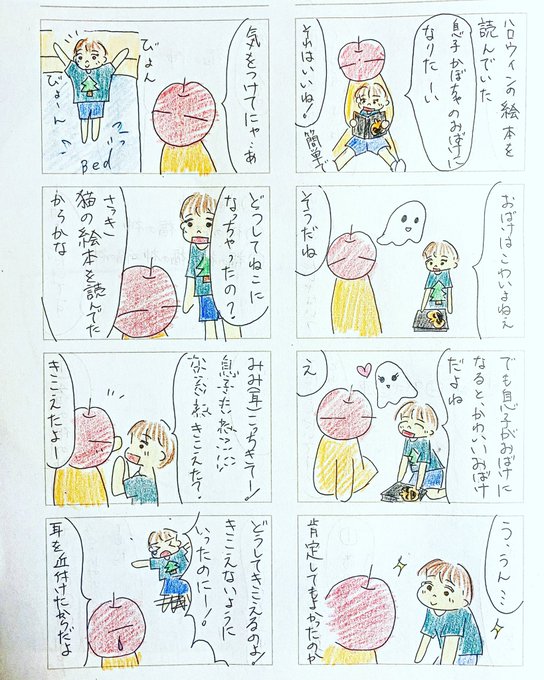 ハロウィンの絵本を
読んでいた
息子かぼちゃのおばけに
なりたーい
それはいいね!
簡単で
おばけはこわいよねぇ
そうだね
でも息子がおばけに
なると、かわいいおばけ
だよね
え
う、うん…
肯定してもよかったのか
びょん
びょーん
Bed
気をつけてにゃーぁ
どうしてねこに
なっちゃったの?
さっき
猫の絵本を読んでた
からかな
みみ(耳)こっちきてー!
きこえた?
きこえたよー
どうしてきこえるのよ!
きこえないように
いったのにー!
耳を近付けたからだよ